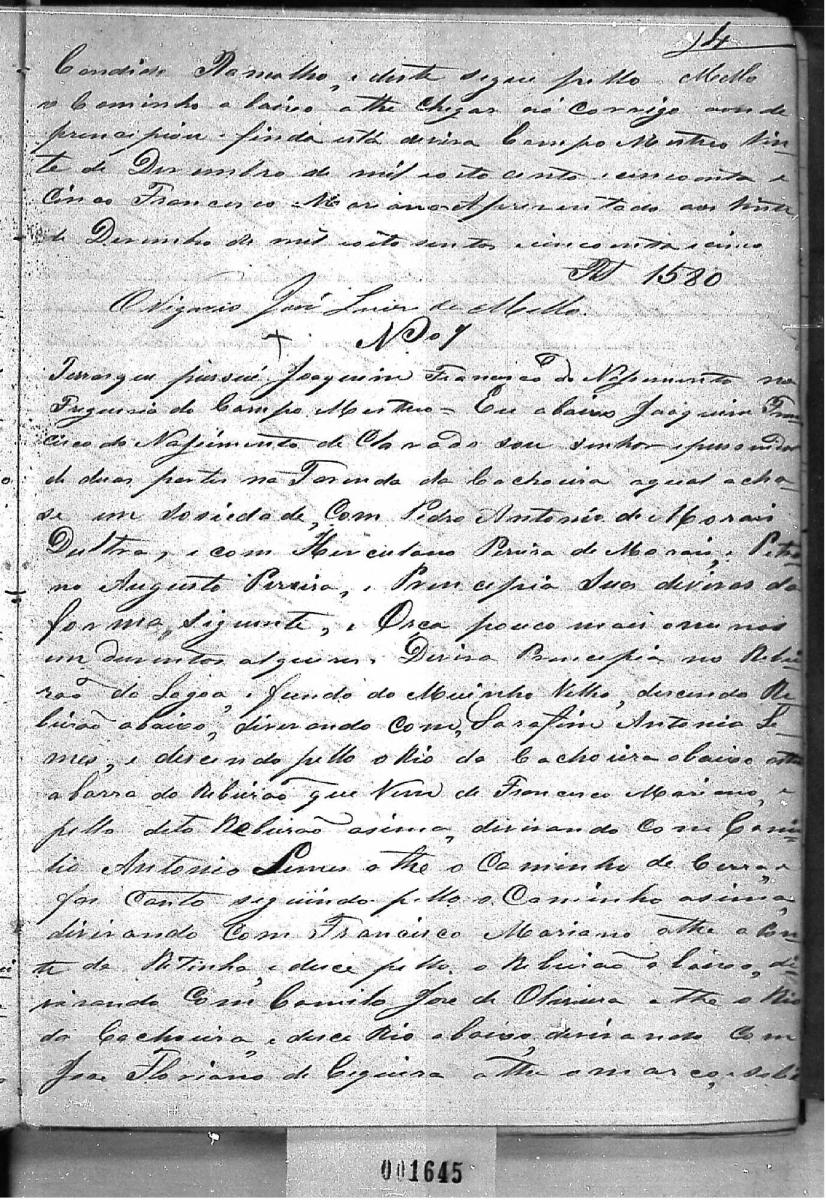 14
Candido Ramalho, e deste segue pello Mello
o Caminho abaixo athe chegar ao corrigo aonde
principiou e finda esta divisa Campo Mistico Vin-
te de Dezembro de mil oito cento e cincoenta e
Cinco Francisco Mariano Aprezentado aos Vinte
de Dezembro de mil oito sentos e cincoenta e cinco
1580
O Vigario José Luiz de Mello.
No 9
Terras que pussue Joaquim Francisco do Nassimento na
Freguesia do Campo Mistico = Eu abaixo Joaquim Fran
cisco do Nassimento de Clarado sou senhor e pussuidor
de duas partes na Fazenda da Cachoeira a qual acha-
se em sosiedade, Com Pedro Antonio de Morais
Dultra, e com Herculano Pereira de Morais, e Petro-
no Augusto Pereira, e Principia suas divizas da
forma, siguinte, e Orça pouco mais ou menos
em duzentos alqueires. Diviza Principia no Ribei
rão da Lagoa, e fundo do Muinho Velho, descendo Ri-
beirão abaixo, divizando com, Sarafim Antonio Le-
mes, e descendo pello o Rio da Cachoeira abaixo athe
a barra do Ribeirão que Vem de Francisco Mariano, e
pello dito Ribeirão asima, divizando com Cami-
lio Antonio Lemes athe o Caminho de Cerra, e
faz Canto seguindo pello o Caminho asima,
divizando Com Francisco Mariano athe a Pon-
te da Ritinha, e desce pello o Ribeirão abaixo, di-
vizando Com Camilo Jose de Oliveira athe o Rio
da Cachoeira, e desce Rio abaixo, divizando com
Joze Floriano de Cequeira athe o marco, e sobe
001645